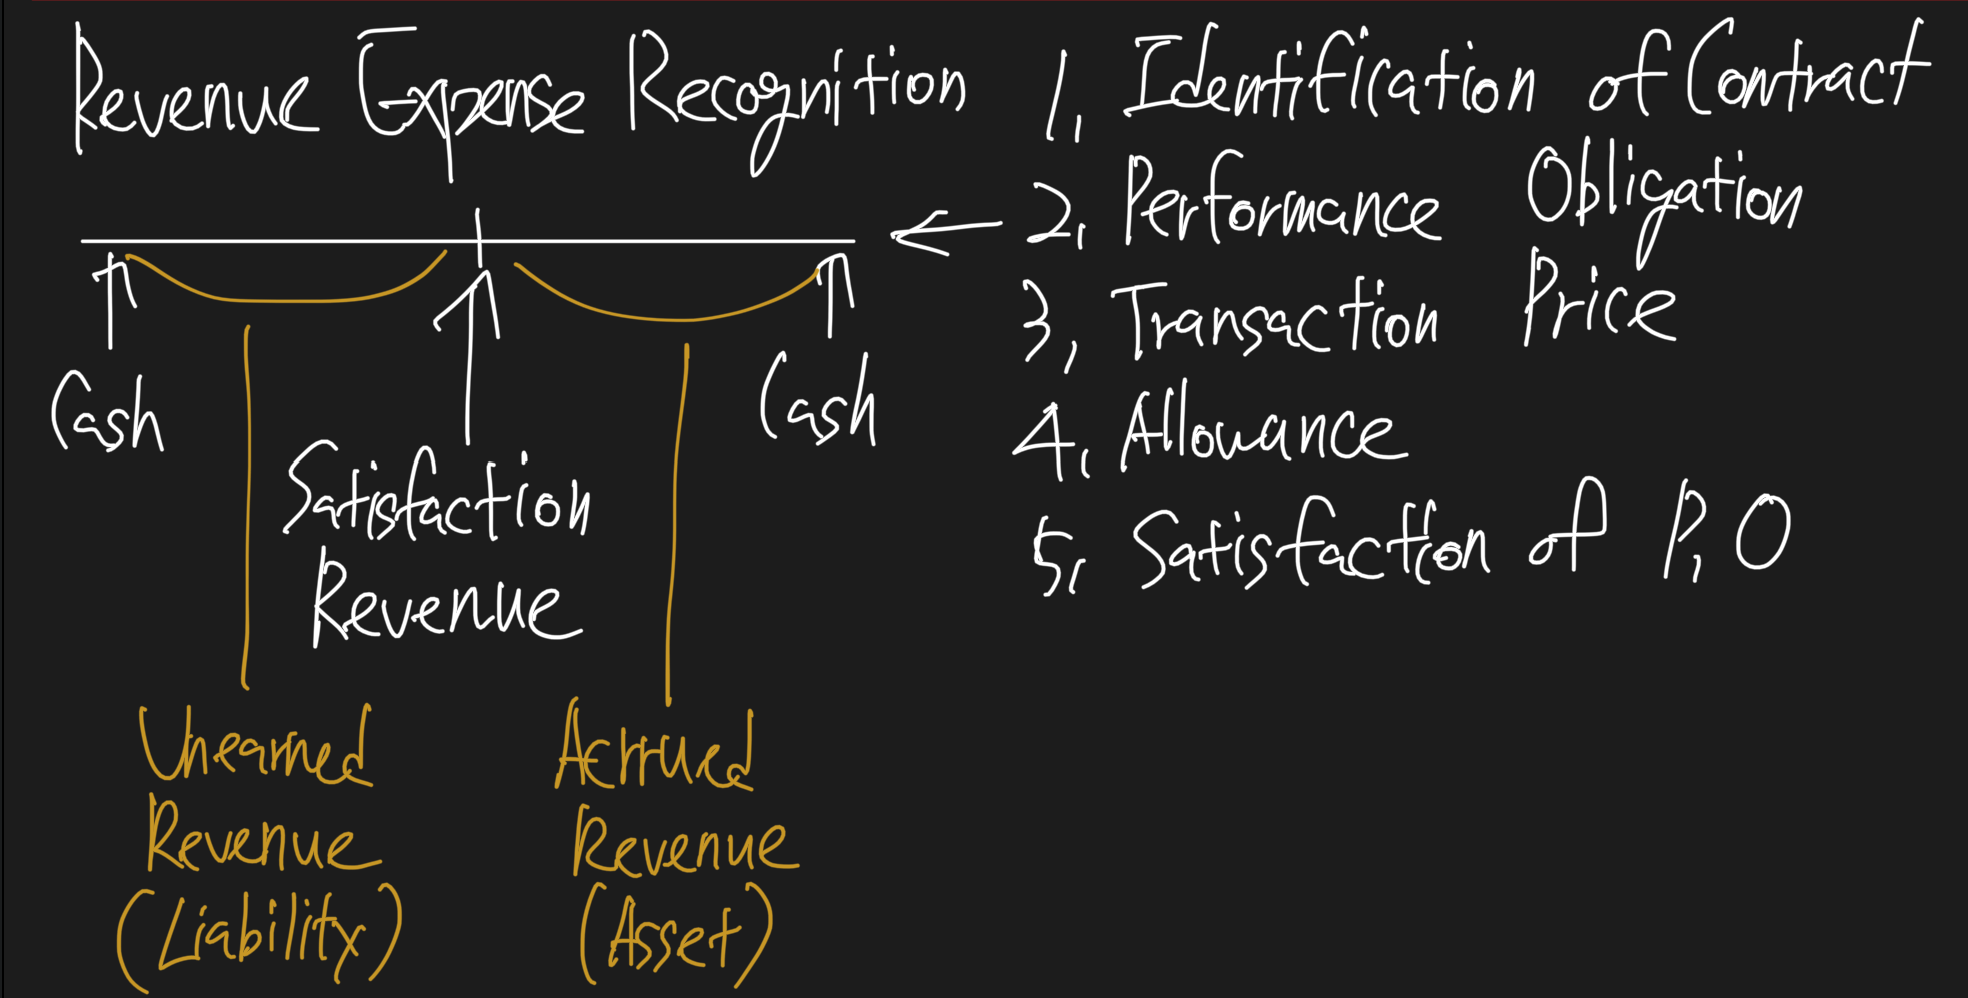 Revenue Expense Recognition
Cash
Satisfaction
Revenue
Cash
Unearned
Revenue
(Liability)
Accrued
Revenue
(Asset)
1. Identification of Contract
2. Performance Obligation
3. Transaction Price
4. Allowance
5. Satisfaction of P.O